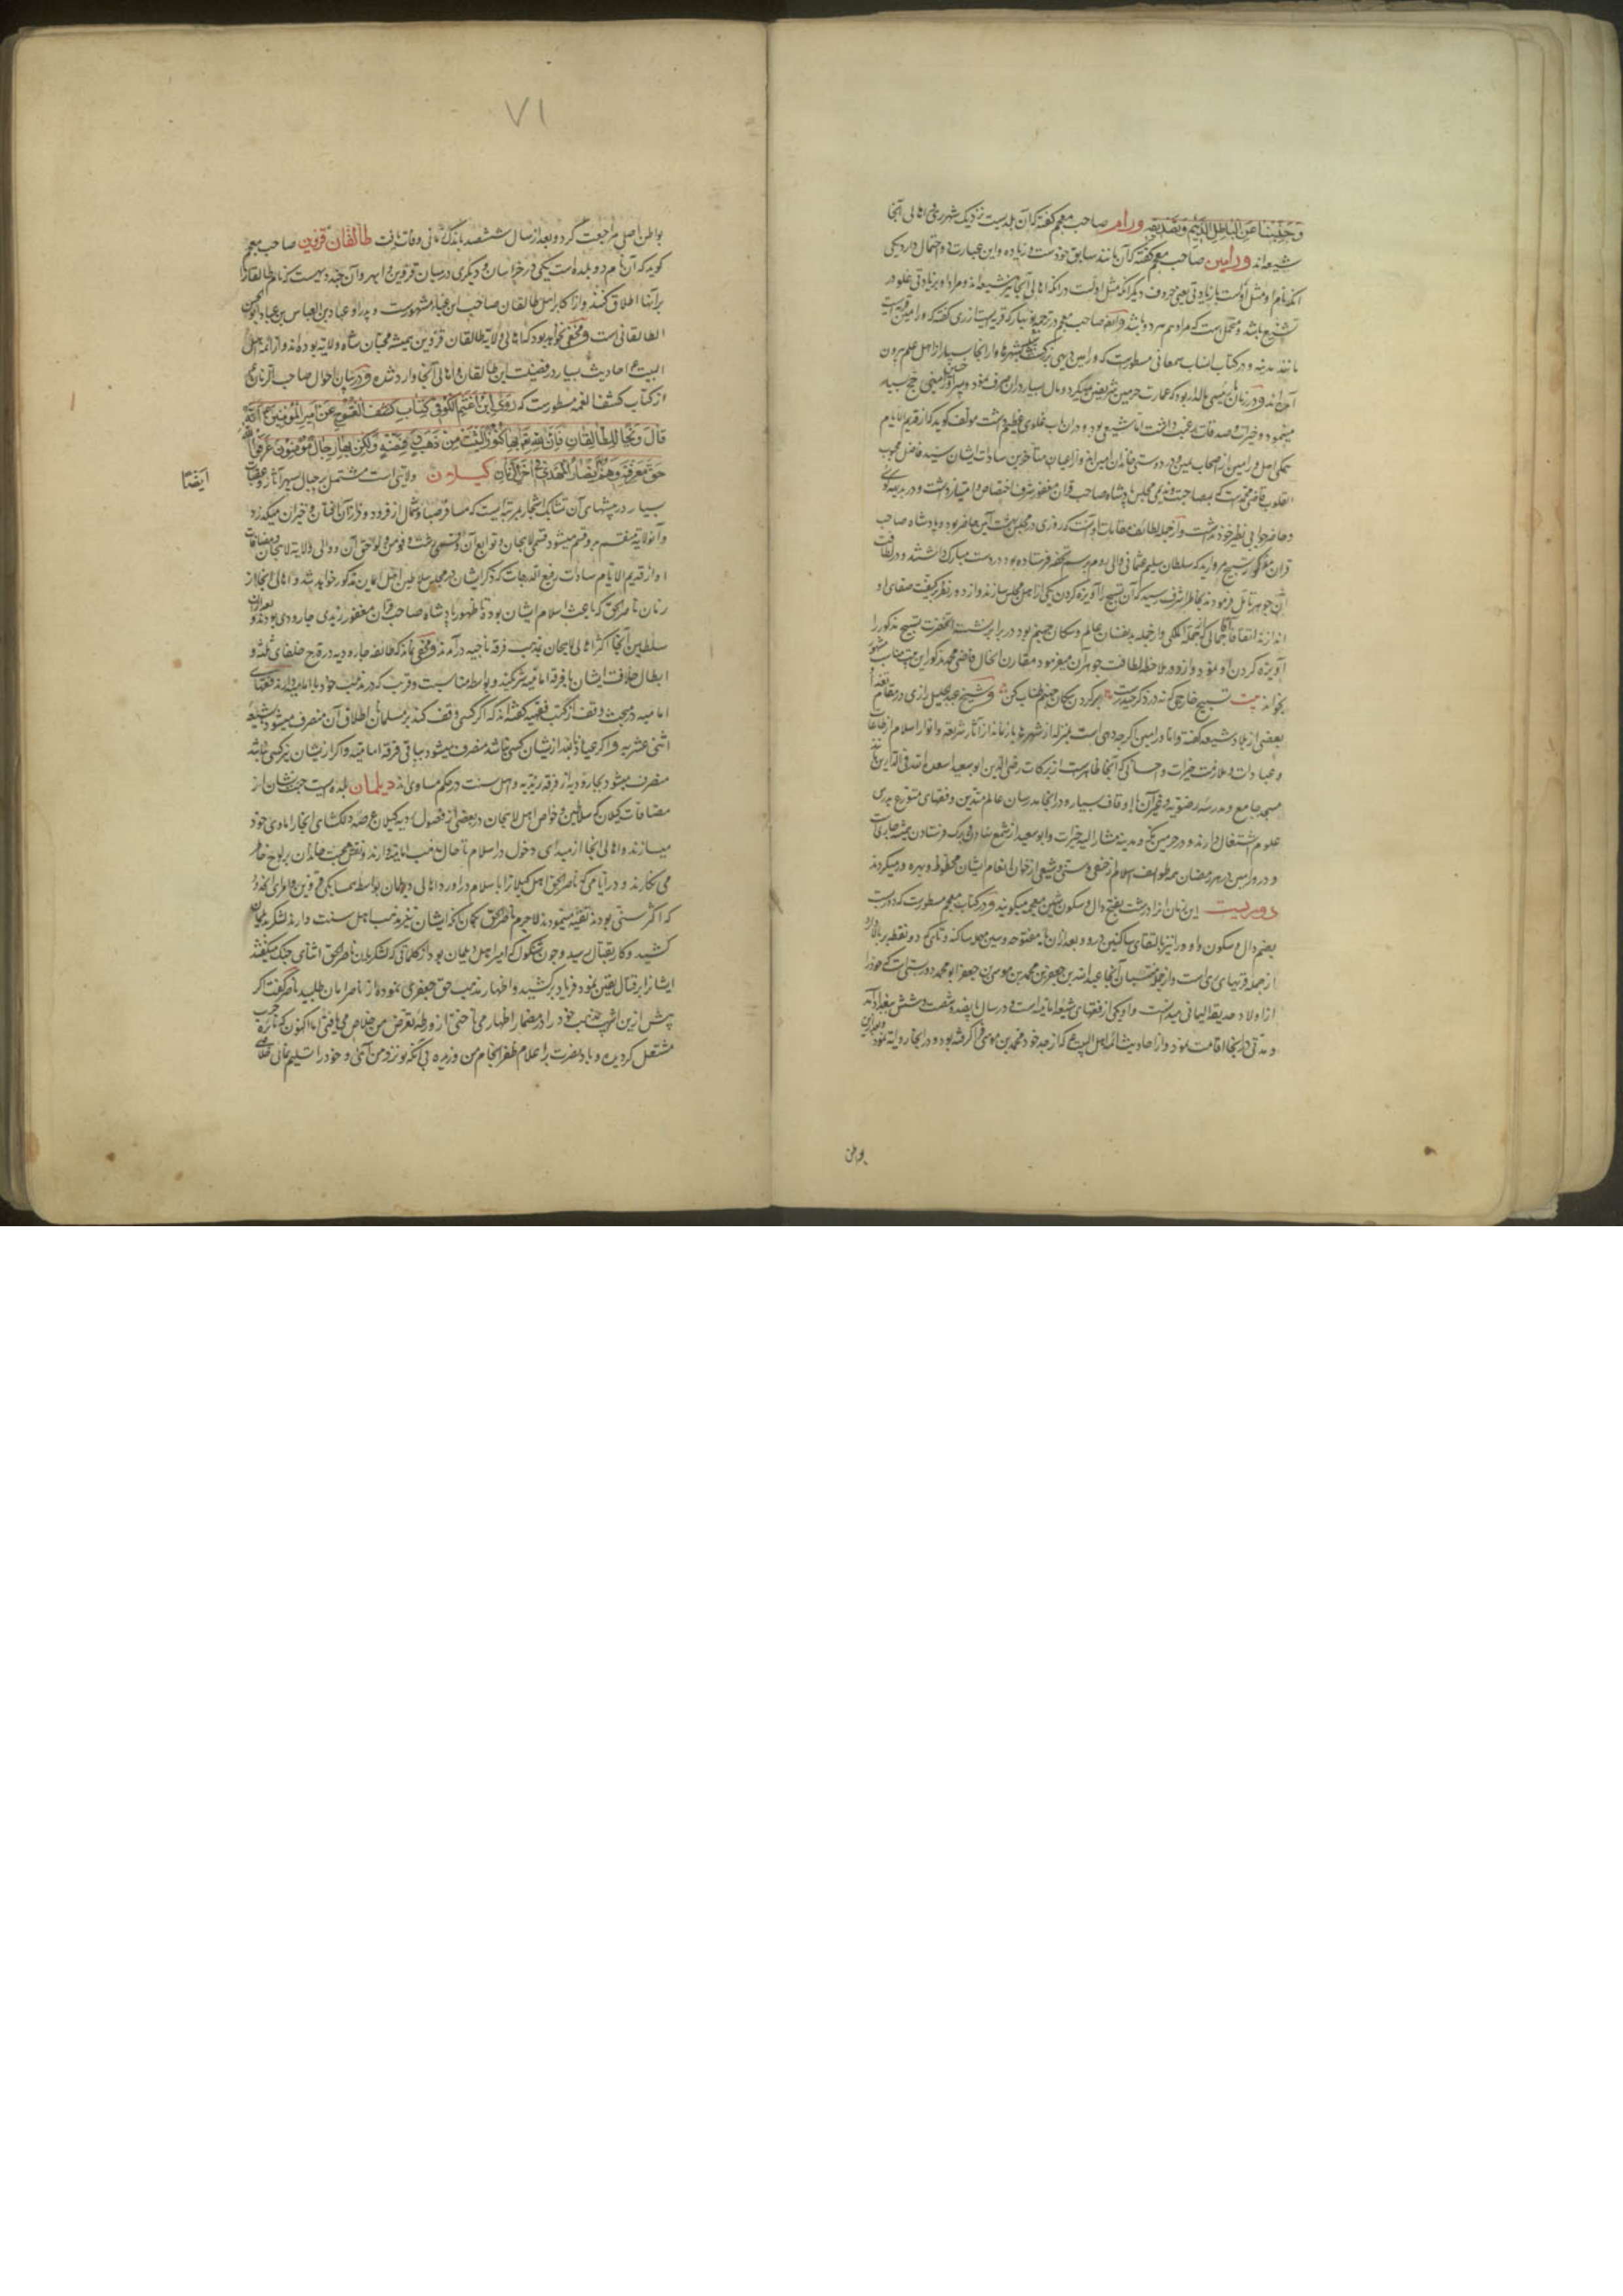 وجنبنا عن الباطل الذمیم وتصدیقه ورام صاحب معجم کفته که آن بلدیست نزدیک بشهر ری و اهالی آنجا
شیعه اند ورامین صاحب معجم کفته که آن مانند سابق خودست و زیاده و این عبارت دو احتمال دارد یکی
آنکه نام او مثل اولست با زیادتی یعنی حروف دیکر آنکه مثل اولست در آنکه اهالی آنجا نیز شیعه اند و مراد او بر زیادتی غلو در
تشیع باشد و محتملست که مراد هر دو باشد و ایضا صاحب معجم در ترجمه
مانند مدینه و در کتاب انساب سمعانی مسطورست که ورامین دیهی بزرکست
آمده اند و در زمان ما رئیسی بالدار بود که عمارت حرمین شریفین میکرد و مال بسیار در آن صرف نمود و پسر او حسین
مینمود و خیرات و صدقات رغبت داشت اما شیعی بود و در آن باب غلوی عظیم داشت مؤلف کوید که از قدیم الایام
همکی اهل ورامین از اصحاب یمین و در دوستی خاندان امین اند و از اعیان متأخرین سادات ایشان سید فاضل محبوب
القلوب قاضی محمدست که بمصاحبت و ندیمی مجلس پادشاه صاحب قران مغفور شرف اختصاص و امتیاز داشت و در بدیهه کوئی
و حاضرجوابی نظیر خود نداشت و از جمله لطائف مقامات او آنست که روزی در مجلس بهشت آئین حاضر بود و پادشاه صاحب
قران مغفور تسبیح مرواریدی که سلطان سلیم عثمانی والی روم برسم تحفه فرستاده بود در دست مبارک داشتند و در لطافت
آن جوهر تأمل فرمودند بخاطر اشرف رسید که آن تسبیح را آویزه کردن یکی از اهل مجلس سازند و از دور نظر بکیفیت صفای او
اندازند اتفاقا
آویزه کردن او نمود و از دور ملاحظه لطافت جوهر آن میفرمود مقارن الحال قاضی محمد مذکور این بیت مناسب
بخواند بیت تسبیح خارجی که نه در ذکر حیدرست بر کردن سکان جهنم طناب کن و شیخ عبدالجلیل رازی در مقام
بعضی از بلاد شیعه کفته و اما ورامین اکرچه دهی است بمنزله از شهرها باز نماند از آثار شریعه و انوار اسلام از طاعات
و عبادات و ملازمت خیرات و احسانی که آنجا ظاهرست از برکات رضی الدین ابوسعید اسعد الله فی الدارین
مسجد جامع و مدرسه رضویه و غیر آن با اوقاف بسیار و در آنجا مدرسان عالم متدین و فقهای متورع بدرس
علوم اشتغال دارند و در حرمین مکه و مدینه مشار الیه خیرات و ابوسعید از شمع نهادن و برک فرستادن
و در ورامین در هر رمضان همه طوایف اسلام از حنفی و سنی و شیعی از خوان انعام ایشان محظوظ و بهره ور میکردند
دوریست این زمان او را درشت بفتح دال و سکون شین معجمه میکویند و در کتاب معجم مسطورست که دوریست
بضم دال و سکون واو و را نیز بالتقای ساکنین درو و بعد از آن بای مفتوحه و سین مهمله ساکنه و تای که دو نقطه بر بالا دارد
از جمله قریهای ری است و از جمله منتسبان آنجا عبدالله بن جعفر بن محمد بن موسی بن جعفر ابومحمد دوریستی است که خود را
از اولاد حذیفة الیمانی میدانست و او یکی از فقهای شیعه امامیه است و در سال پانصد و شصت و شش ببغداد آمد
و مدتی در آنجا اقامت نمود و از احادیث ائمه اهل البیت ع که از جد خود محمد بن موسی فرا کرفته بود و در آنجا روایة نمود و بعد از آن
بواطن
٧١
بوطن اصلی مراجعت کرد و بعد از سال ششصد باندک زمانی وفات یافت طالقان قزوین صاحب معجم
کوید که آن نام دو بلده است یکی در خراسان و دیکری در میان قزوین و ابهر و آن چند دیهست که نام طالقان را
بر آنها اطلاق کنند و از اکابر اهل طالقان صاحب ابن عباد مشهورست و پدر او عباد بن العباس بن عباد ابوالحسن
الطالقانی است و مخفی نخواهد بود که اهالی ولایة طالقان قزوین همیشه محبان شاه ولایة بوده اند و از ائمه اهل
البیت ع احادیث بسیار در فضیلت این طالقان و اهالی آنجا وارد شده و در بیان احوال صاحب الزمان ع
از کتاب کشف الغمه مسطورست که روی ابن اعثم الکوفی فی کتاب کشف الفتوح عن امیر المؤمنین ع انه
قال ویحا للطالقان فان لله تع بها کنوزا لیست من ذهب و لا فضة ولکن بها رجال مؤمنون عرفوا الله
حق معرفته وهم ایضا انصار المهدی فی آخر الزمان کیلان ولایتی است مشتمل بر جبال سپهر آثار و عقبات
ایضا
بسیار در بیشهای آن تشابک اشجار بمرتبه ایست که مسافر صبا و شمال از فرود و فراز آن افتان و خیزان میکذرد
و آنولایة منقسم بدو قسم میشود قسمی لاهجان و توابع آن و قسمی رشت و فومن و لواحق آن و والی ولایة لاهجان و مضافات
او از قدیم الایام سادات رفیع الدرجات که ذکر ایشان در مجلس سلاطین اهل ایمان مذکور خواهد شد و اهالی آنجا از
زمان ناصر الحق که باعث اسلام ایشان بوده تا ظهور پادشاه صاحب قران مغفور زیدی جارودی بودند و بعد از آن
سلاطین آنجا اکثر اهالی لاهجان بمذهب فرقه ناجیه در آمدند و مخفی نماند که طائفه جارودیه در قدح خلفای ثلثه و
ابطال خلافت ایشان با فرقه امامیه شریکند و بواسطه مناسبت و قرب که در مذهب خود با امامیه دارند فقهای
امامیه در مبحث وقف از کتب فقهیه کفته اند که اکر کسی وقف کند بر مسلمانان اطلاق آن منصرف میشود بشیعه
اثنی عشریه و اکر عیاذا بالله از ایشان کسی نباشد منصرف میشود بباقی فرقه امامیه و اکر از ایشان نیز کسی نباشد
منصرف میشود بجارودیه از فرقه زیدیه و اهل سنت در حکم مساوی اند دیلمان بلده ایست جنت نشان از
مضافات کیلان که سلاطین و خواص اهل لاهجان در بعضی از فصول اربعه کیلان عرصه دلکشای آنجا را ماوای خود
میسازند و اهالی آنجا از مبدای دخول در اسلام تا حال مذهب امامیه دارند و نقش محبت خاندان بر لوح خاطر
می نکارند و در ایامی که ناصر الحق اهل کیلانرا باسلام در آورد اهالی دیلمان بواسطه همسایکی قزوین
که اکثر سنی بودند تقیه مینمودند لاجرم ناصر الحق بکمان آنکه ایشان نیز مذهب اهل سنت دارند لشکر بدیلمان
کشید و کار بقتال رسید و چون شکول که امیر اهل دیلمان بود از کلماتی که لشکریان ناصر الحق اثنای جنک میکفتند
ایشانرا بر قتال یقین نمود فریاد برکشید و اظهار مذهب حق جعفری نموده از ناصر امان طلبید ناصر کفت اکر
پیش ازین اسب مذهب خود را در مضمار اظهار می تاختی از ورطه تعرض من خلاص می یافتی اما اکنون که نائره حرب
مشتعل کردیده و باد نصرت بر اعلام ظفر انجام من وزیده بی آنکه تو نزد من آئی و خود را تسلیم نمائی خلاصی